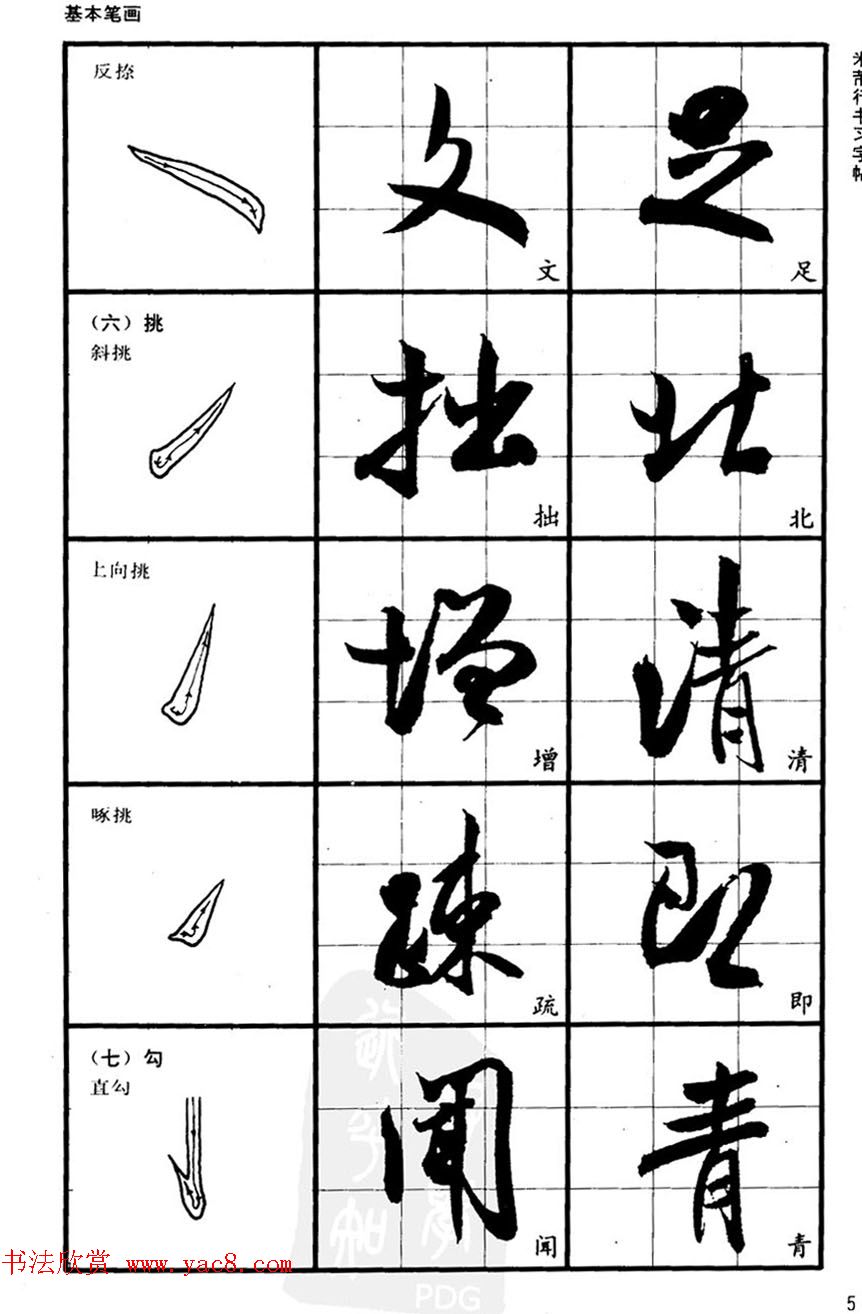 基本笔画
米芾行书习字帖
反捺
文
足
（六）挑
斜挑
拙
北
上向挑
增
清
啄挑
疏
即
（七）勾
直勾
闻
青
书法欣赏 www.yac8.com
PDG
5